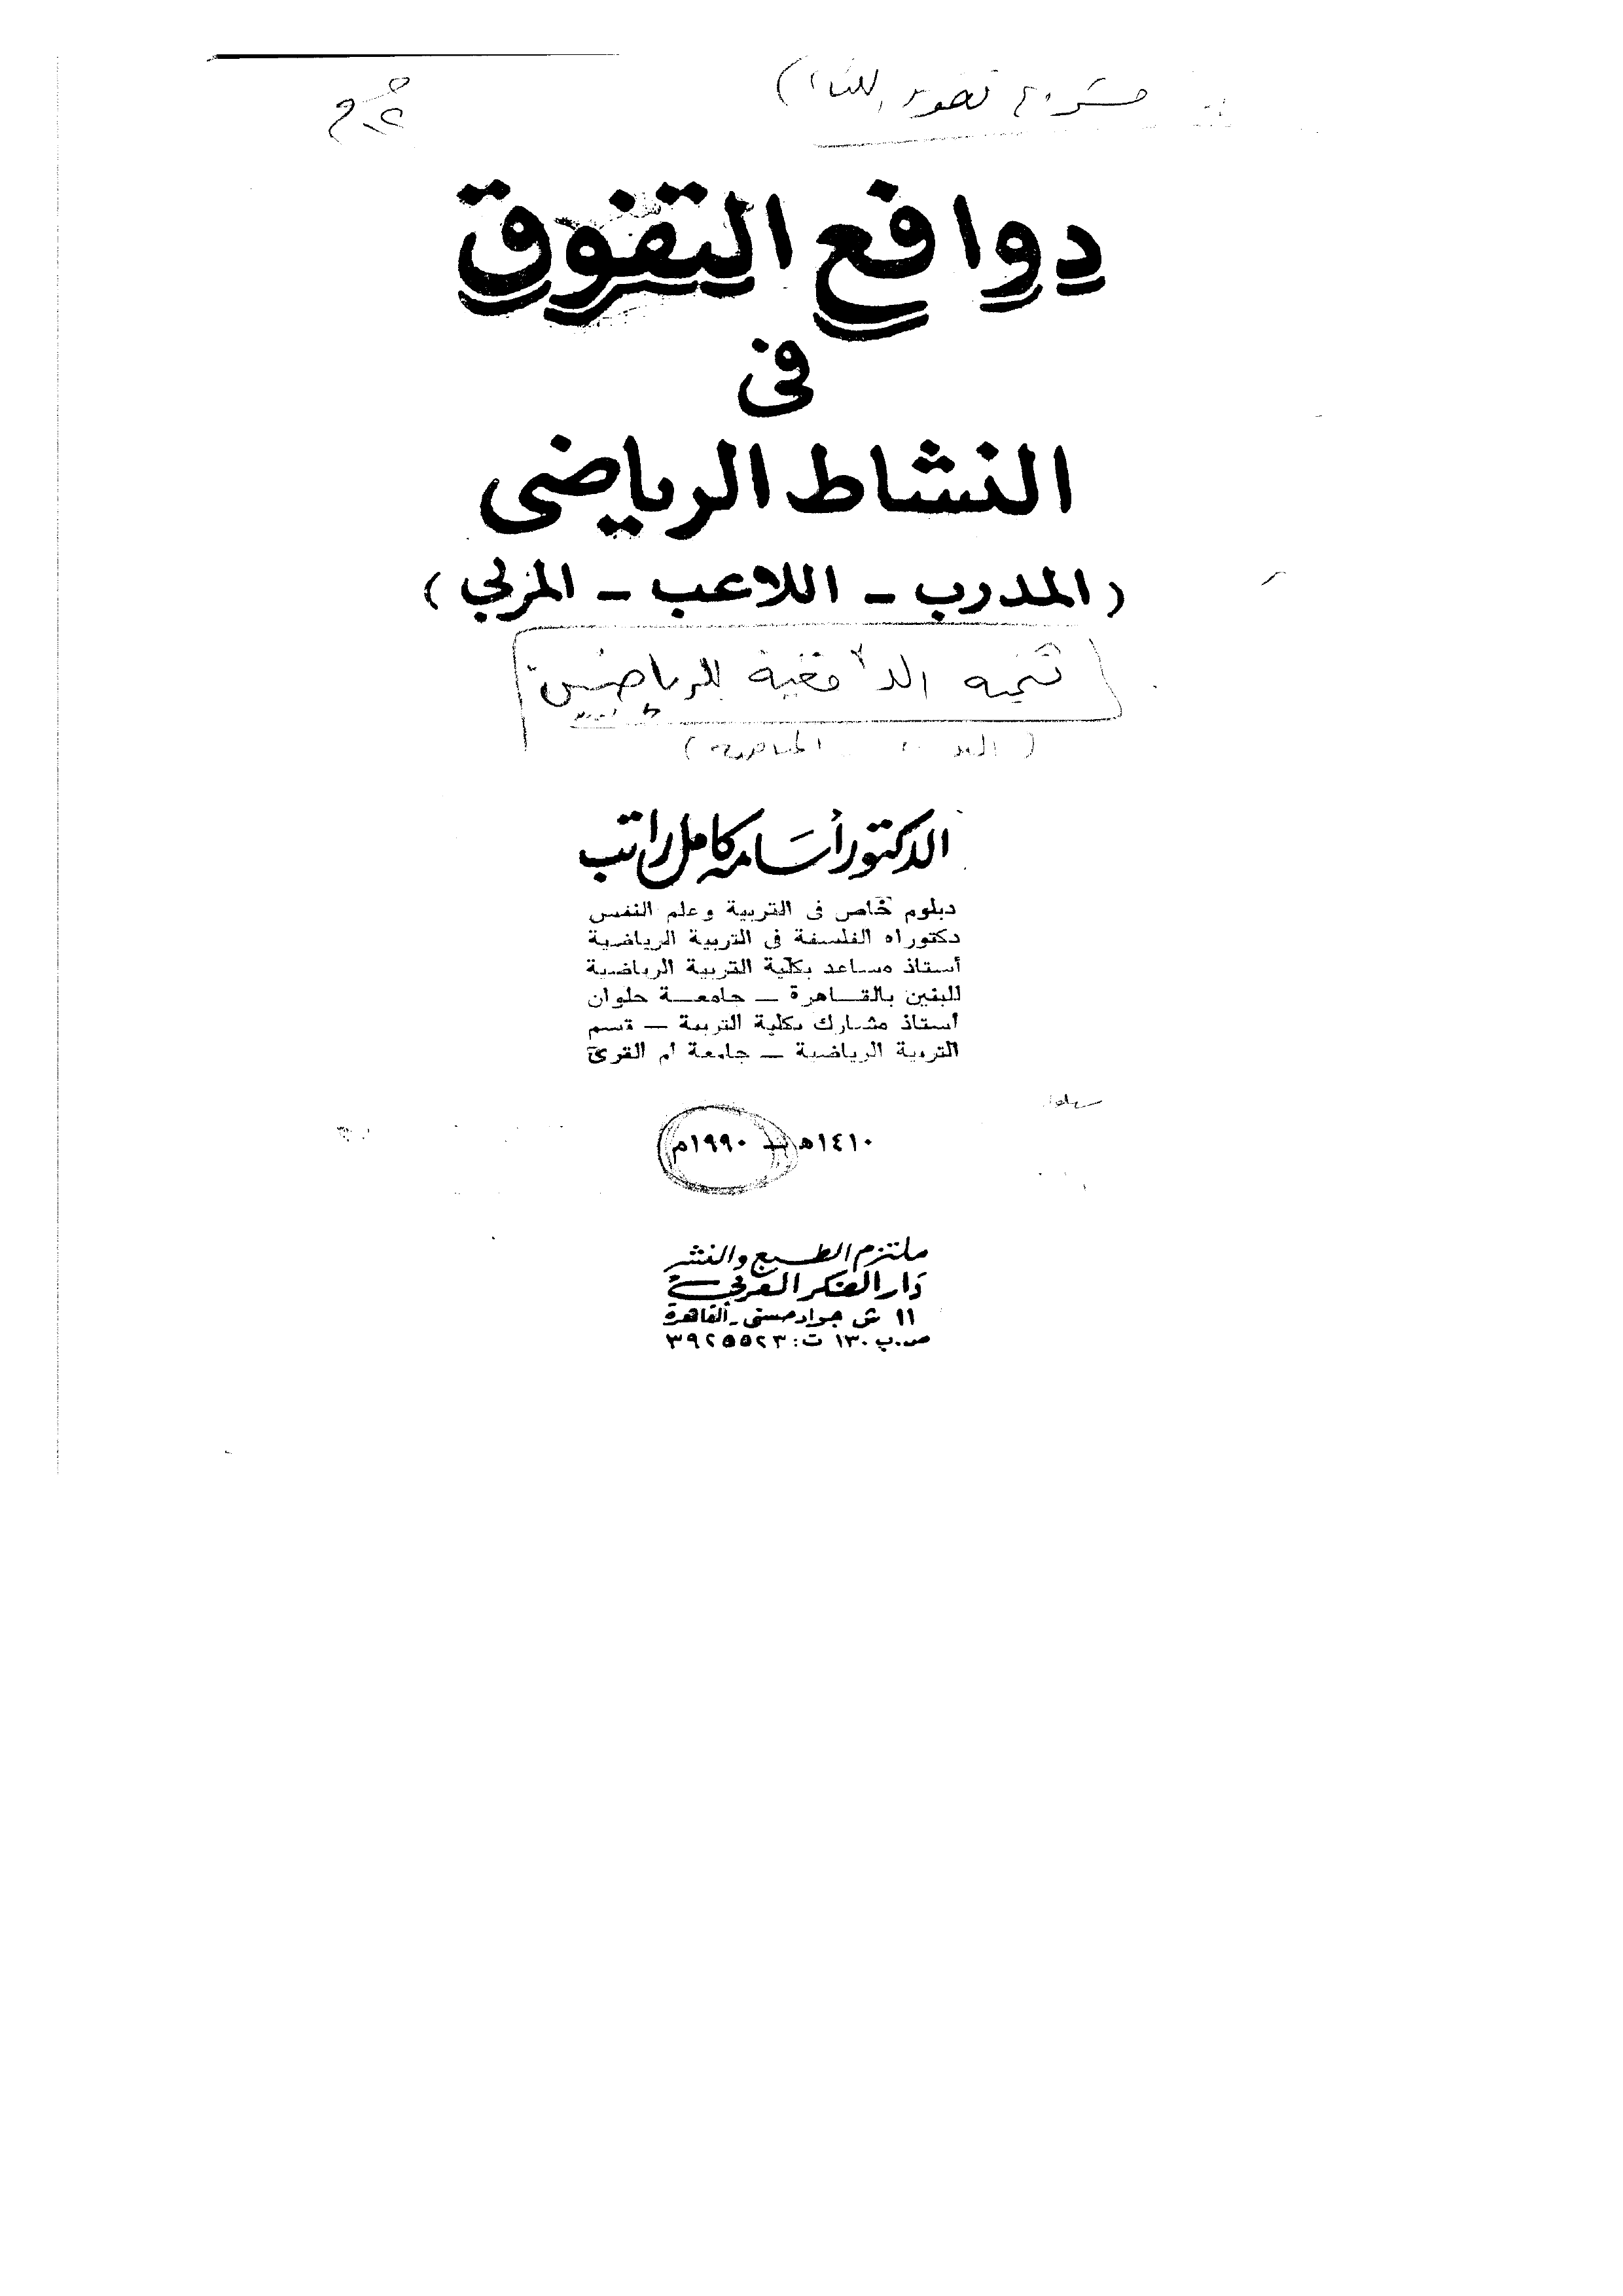 دوافع التفوق
فى
النشاط الرياضى
(المدرب - اللاعب - المربي)
تنمية الدافعية للرياضيين
الدكتور أسامه كامل راتب
دبلوم خاص فى التربية وعلم النفس
دكتوراه الفلسفة فى التربية الرياضية
أستاذ مساعد بكلية التربية الرياضية
للبنين بالقاهرة — جامعة حلوان
أستاذ مشارك بكلية التربية — قسم
التربية الرياضية — جامعة أم القرى
١٤١٠هـ — ١٩٩٠م
ملتزم الطبع والنشر
دار الفكر العربي
١١ ش جواد حسنى - القاهرة
ص.ب ١٣٠ ت: ٣٩٢٥٥٢٣